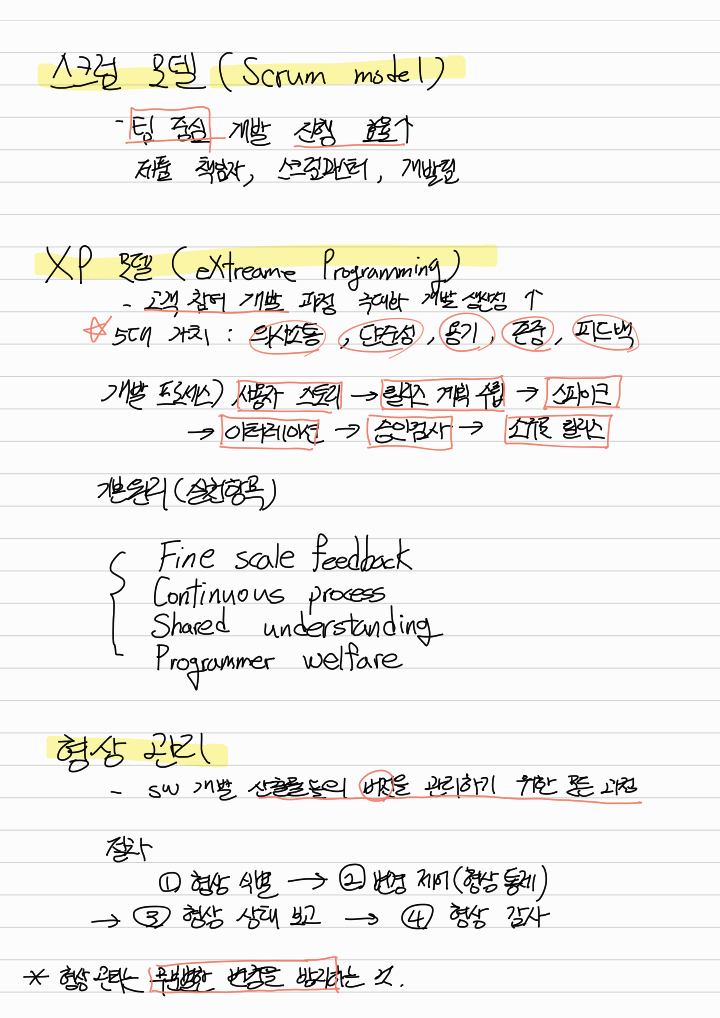 스크럼 모델 (Scrum model)
- 팀 중심 개발 진행 효율↑
제품 책임자, 스크럼마스터, 개발팀
XP 모델 (eXtreame Programming)
- 고객 참여 개발 과정 극대화 개발 생산성 ↑
☆ 5대 가치 : 의사소통, 단순성, 용기, 존중, 피드백
개발 프로세스) 사용자 스토리 → 릴리즈 계획 수립 → 스파이크
→ 이터레이션 → 승인검사 → 소규모 릴리즈
기본원리 (실천항목)
Fine scale feedback
Continuous process
Shared understanding
Programmer welfare
형상 관리
- SW 개발 산출물들의 버전을 관리하기 위한 모든 과정
절차
① 형상 식별 → ② 변경 제어 (형상 통제)
→ ③ 형상 상태 보고 → ④ 형상 감사
* 형상 관리는 무분별한 변경을 방지하는 것.